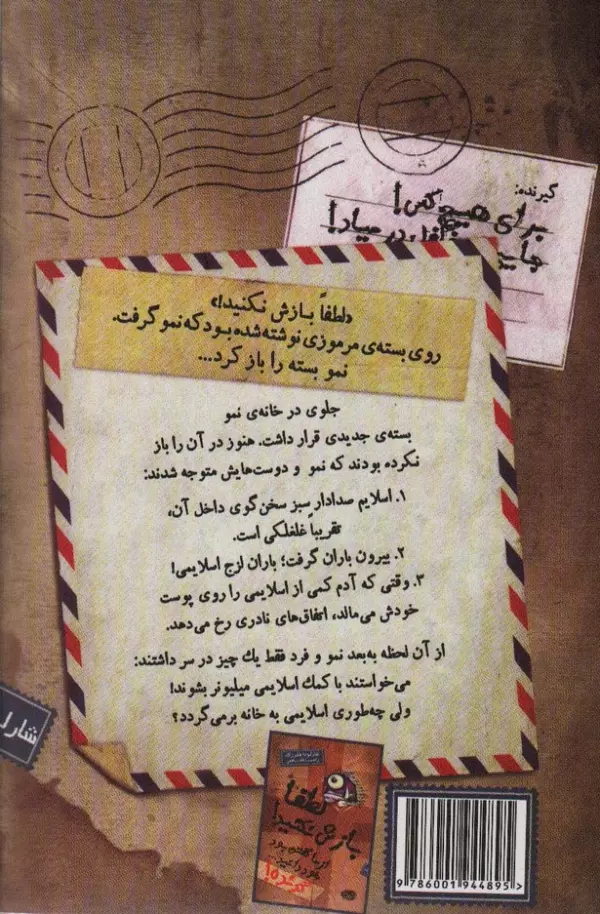 گیرنده:
برای هیچ کس!
«لطفاً بازش نکنید!»
روی بسته‌ی مرموزی نوشته شده بود که نمو گرفت.
نمو بسته را باز کرد...
جلوی در خانه‌ی نمو
بسته‌ی جدیدی قرار داشت. هنوز در آن را باز
نکرده بودند که نمو و دوست‌هایش متوجه شدند:
۱. اسلایم صدادار سبز سخن‌گوی داخل آن،
تقریباً غلغلکی است.
۲. بیرون باران گرفت؛ باران لزج اسلایمی!
۳. وقتی که آدم کمی از اسلایمی را روی پوست
خودش می‌مالد، اتفاق‌های نادری رخ می‌دهد.
از آن لحظه به‌بعد نمو و فرد فقط یك چیز در سر داشتند:
می‌خواستند با کمك اسلایمی میلیونر بشوند!
ولی چه‌طوری اسلایمی به خانه برمی‌گردد؟
شارل
لطفاً
بازش نکنید!
9 786001 944895 >